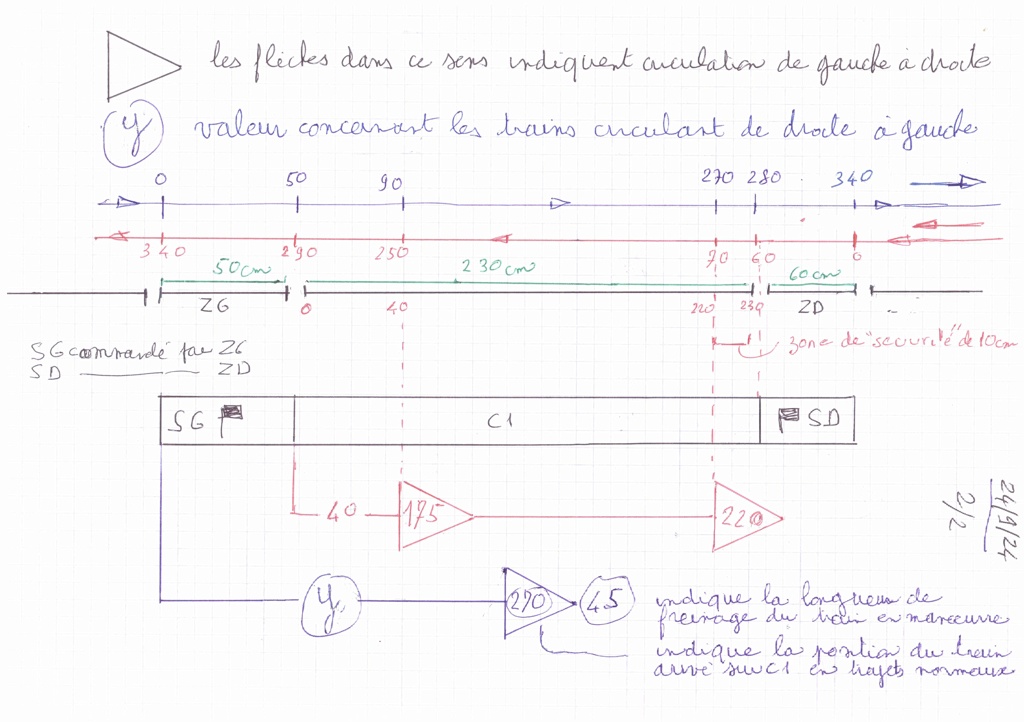 les flèches dans ce sens indiquent circulation de gauche à droite
y valeur concernant les trains circulant de droite à gauche
0 50 90 270 280 340
340 290 250 70 60 0
50cm 230cm 60cm
ZG 0 40 220 230 ZD
zone de "sécurité" de 10cm
SG commandé par ZG
SD ZD
SG C1 SD
40 175 220
y 270 45
indique la longueur de
freinage du train en manœuvre
indique la position du train
arrivé sur C1 en trajets normaux
24/9/24
2/2